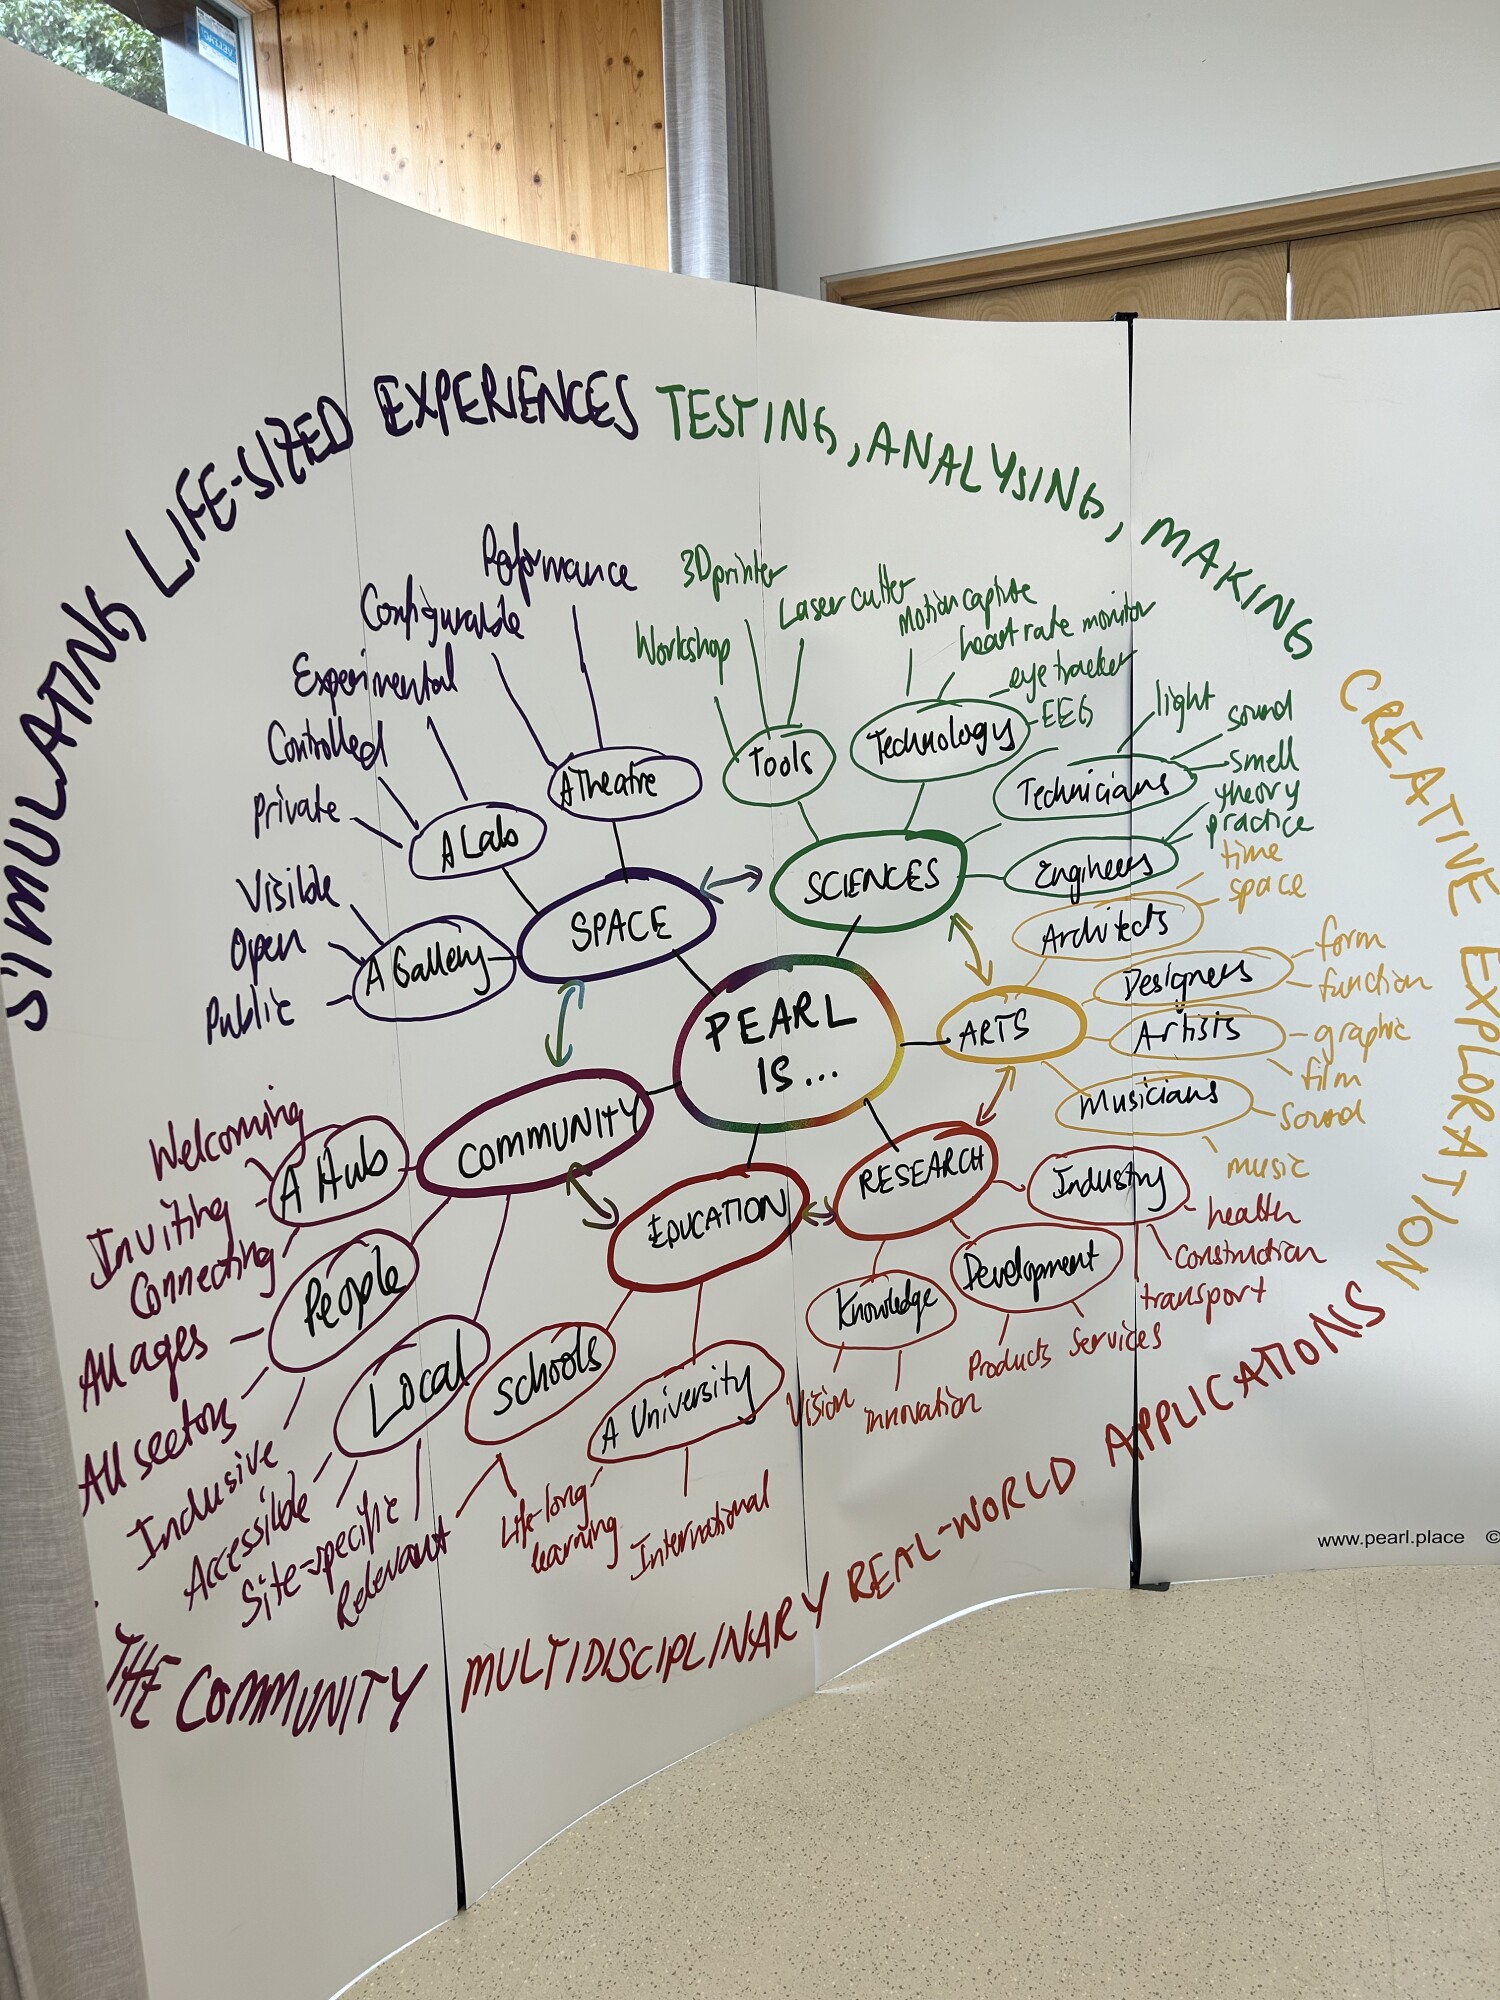 SIMULATING LIFE-SIZED EXPERIENCES TESTING, ANALYSING, MAKING CREATIVE EXPLORATION
PEARL
IS...
SPACE
A Theatre
Performance
Configurable
A Lab
Experimental
Controlled
Private
A Gallery
Visible
Open
Public
SCIENCES
Tools
Workshop
3D printer
Laser cutter
Technology
Motion capture
heart rate monitor
eye tracker
EEG
Technicians
light
sound
smell
Engineers
theory
practice
ARTS
Architects
time
space
Designers
form
function
Artists
graphic
film
Musicians
sound
music
RESEARCH
Industry
health
construction
transport
Development
Products
Services
Knowledge
Vision
innovation
EDUCATION
A University
International
Life-long
learning
Schools
COMMUNITY
A Hub
Welcoming
Inviting
Connecting
People
All ages
All sectors
Inclusive
Local
Accessible
Site-specific
Relevant
THE COMMUNITY MULTIDISCIPLINARY REAL-WORLD APPLICATIONS
www.pearl.place ©